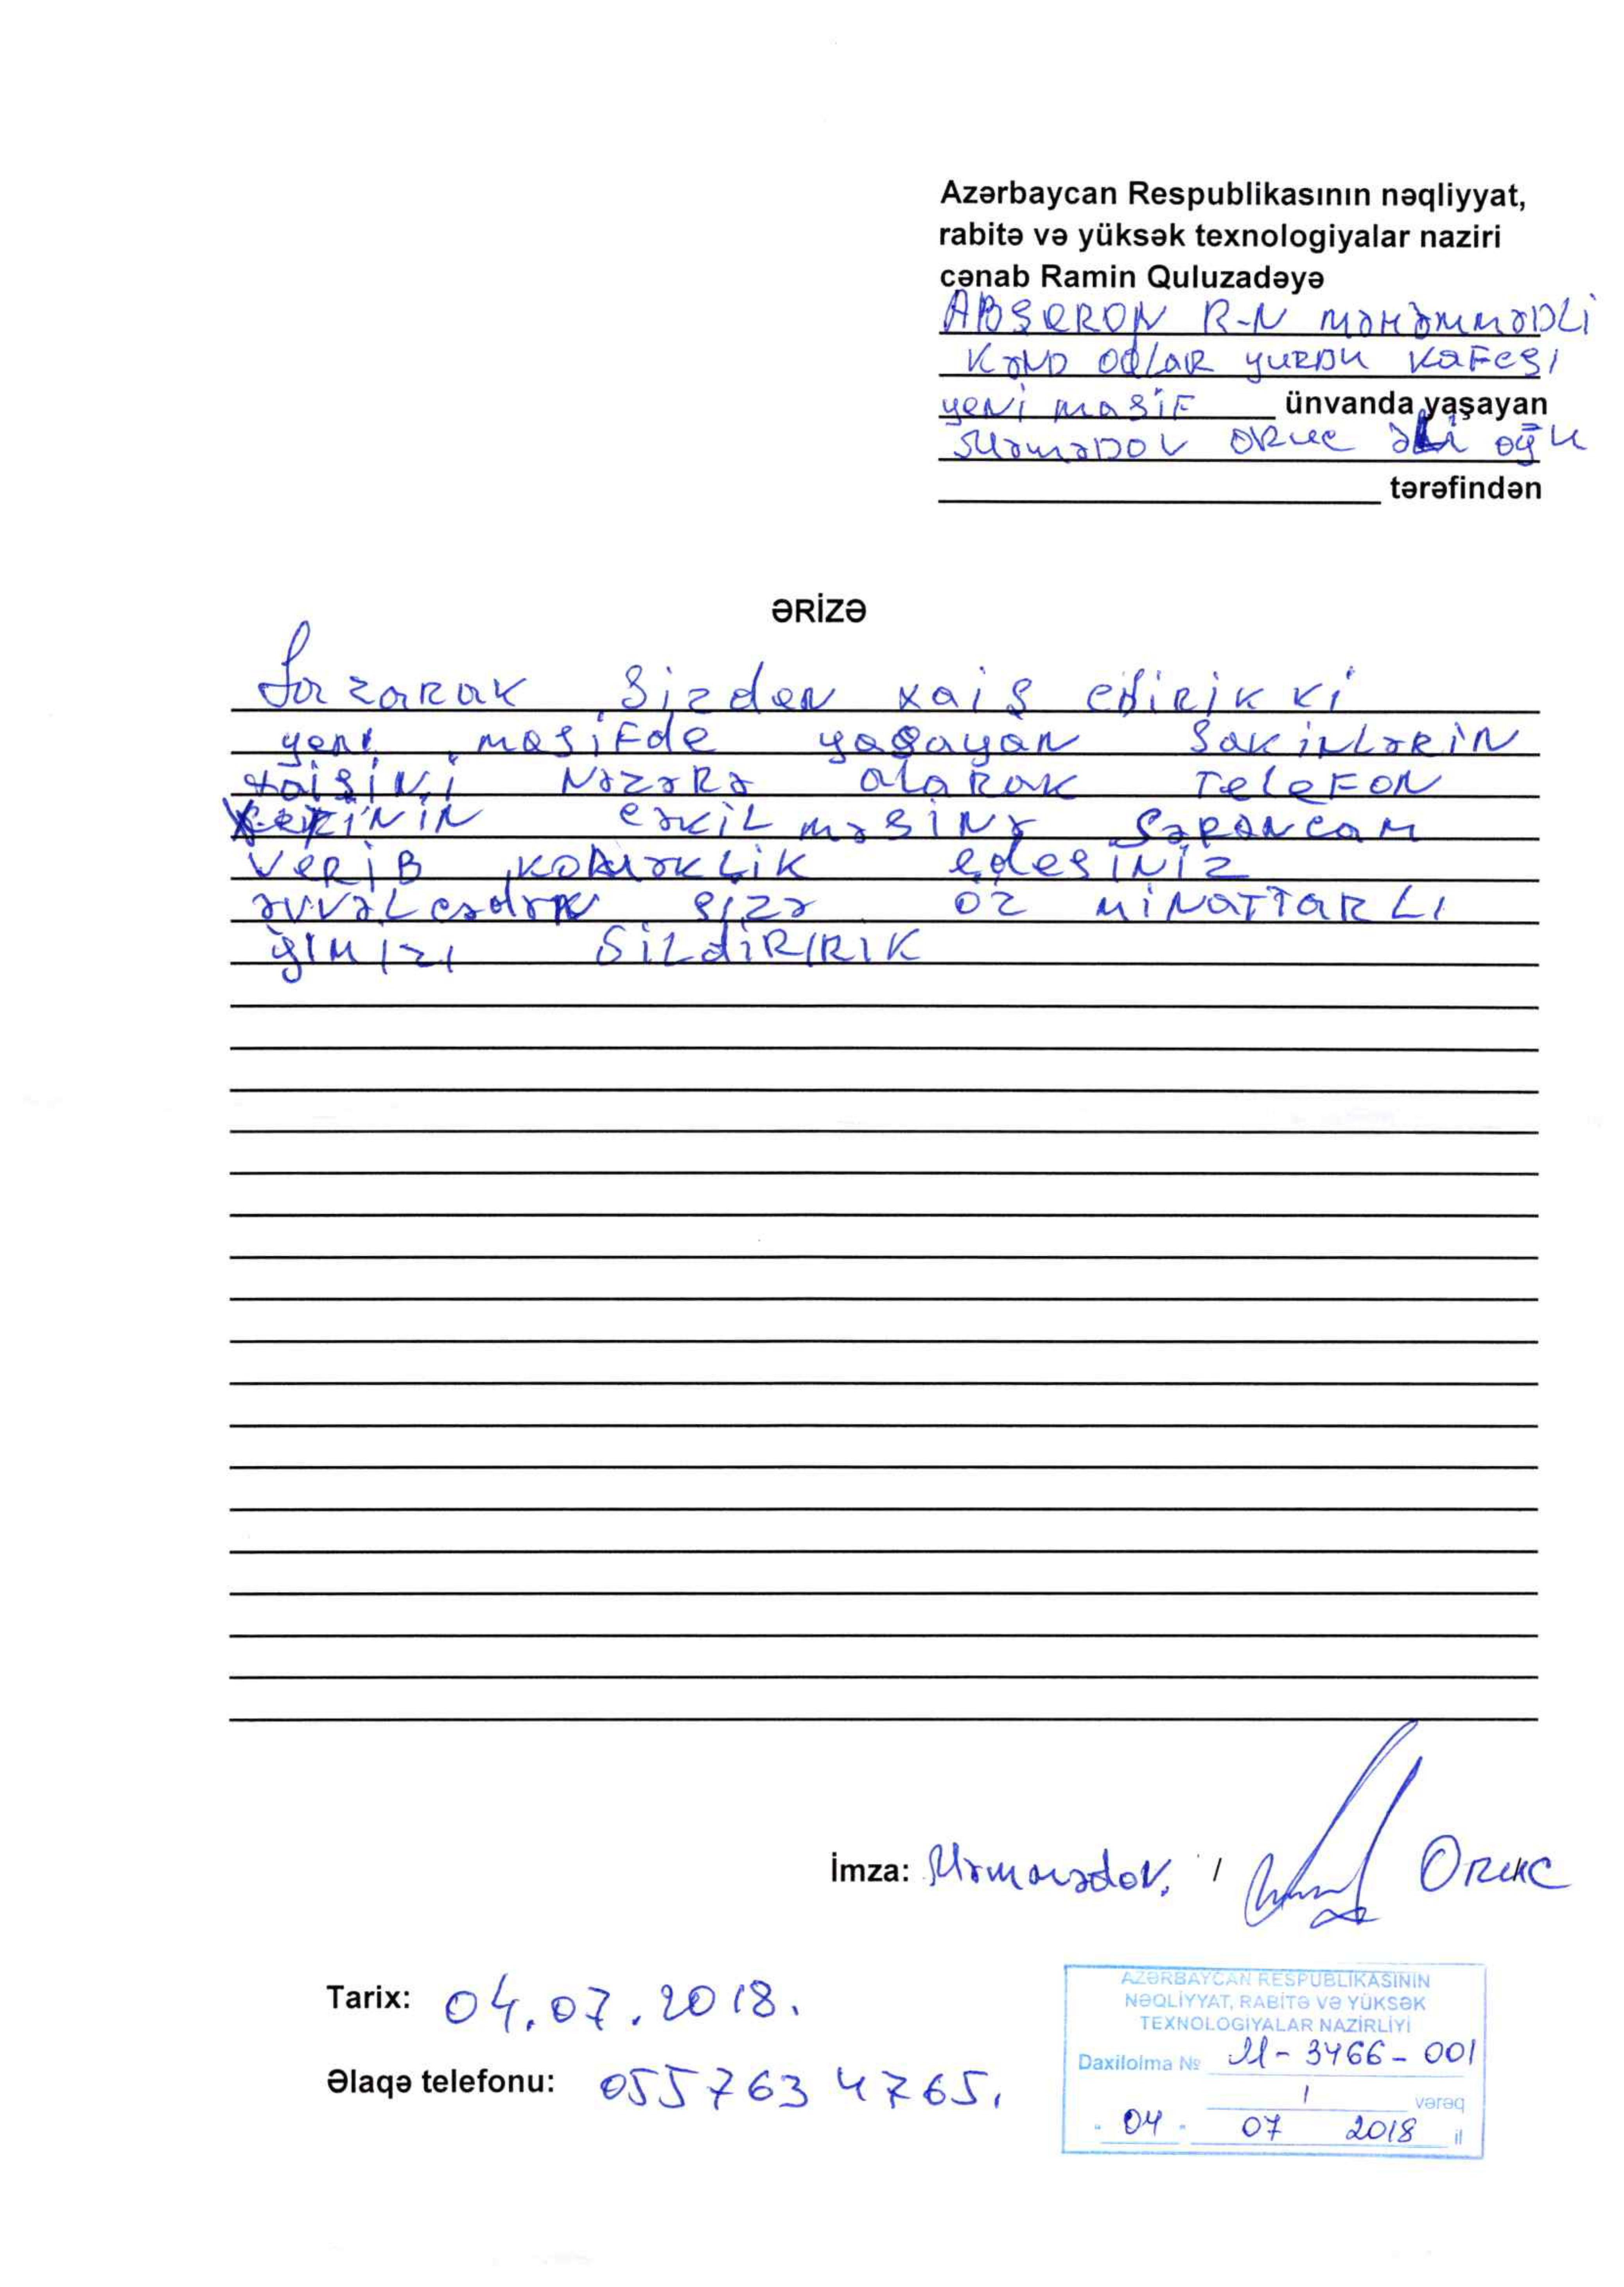 Azərbaycan Respublikasının nəqliyyat,
rabitə və yüksək texnologiyalar naziri
cənab Ramin Quluzadəyə
ABŞERON R-N MəHəmməDLİ
KəND ODLAR YURDU KaFesı
yeni masiF ünvanda yaşayan
MəməDOV ORuc əLi oğu
tərəfindən
ƏRİZƏ
Yazarak Sizden xaiş edirik ki
yeni masiFde yaşayan SakinLəRiN
xaişini NəzəRə alaRak TeleFON
çəkiLməsiNə SəRəNcam
VeRiB köməkLik edesiNiz
əvvəLcədən sizə öz MiNaTTaRLı
ğımızı BiLdiRiRiK
İmza: Məmmədov. / ORuc
Tarix: 04.07.2018.
Əlaqə telefonu: 055 763 47 65.
AZƏRBAYCAN RESPUBLİKASININ
NƏQLİYYAT, RABİTƏ VƏ YÜKSƏK
TEXNOLOGİYALAR NAZİRLİYİ
Daxilolma № M-3466-001
1 vərəq
" 04 " 07 2018 il